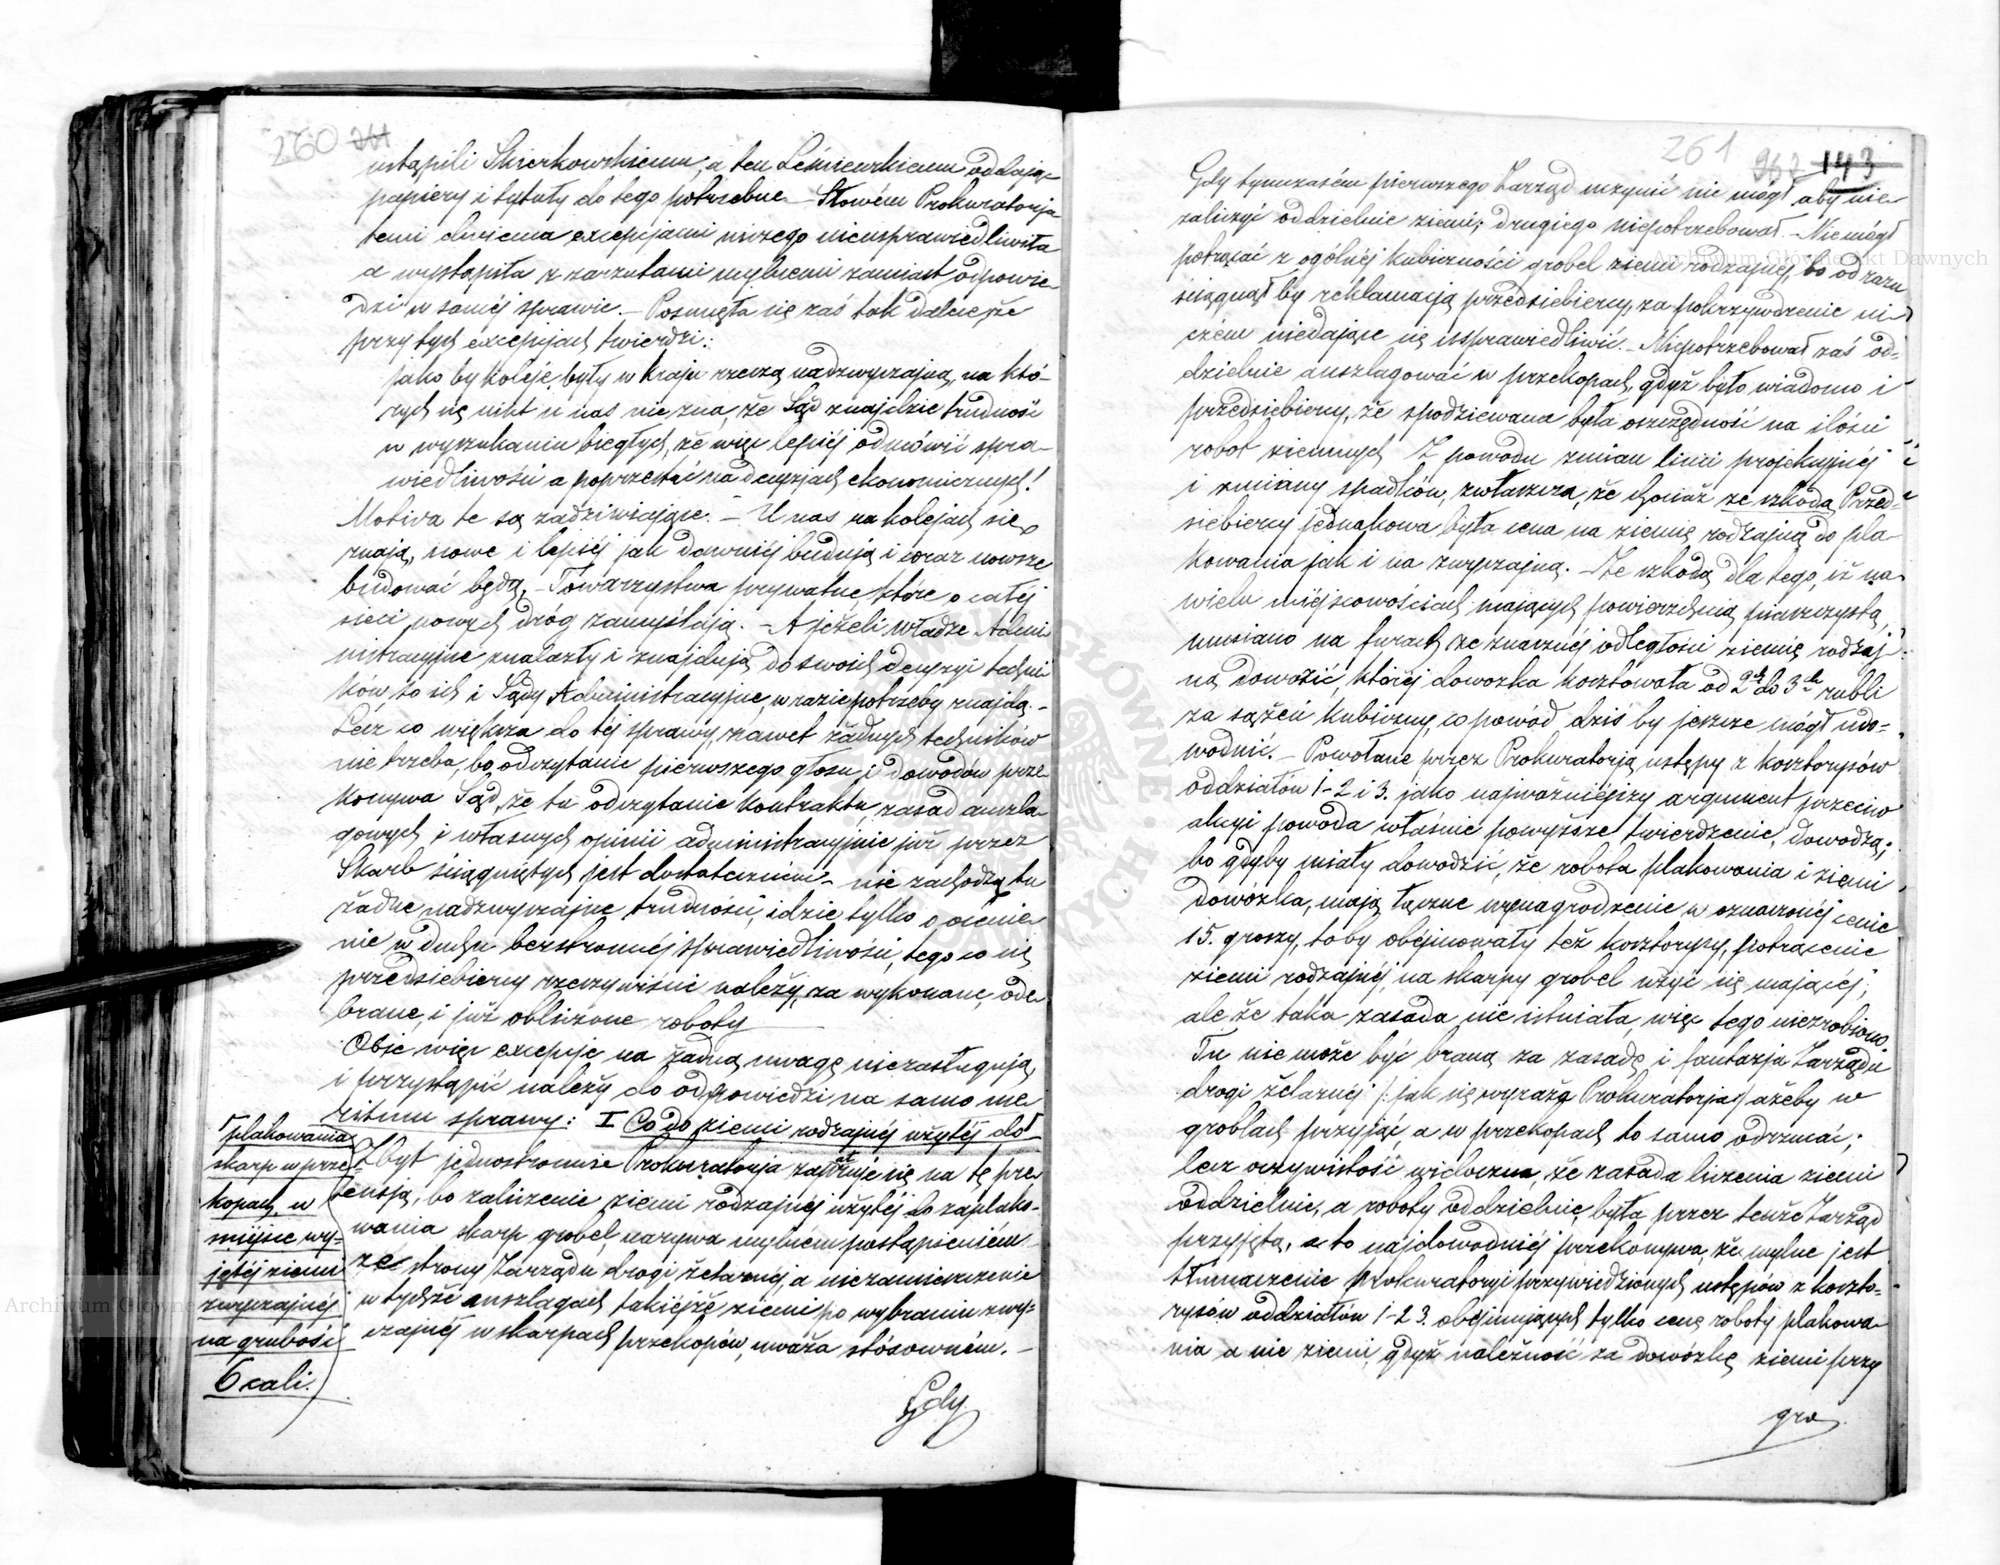 260 261
ustąpili Skierkowskiemu, a ten Leśniewskiemu oddając
papiery i tytuły do tego potrzebne – Słowém Prokuratorja
temi dwiema excepcjami niczego nieusprawiedliwiła
a wystąpiła z zarzutami mylnemi zamiast odpowie-
dzi w saméj sprawie. – Posunęła się zaś tak dalece, że
przy tych excepcjach twierdzi:
jako by koleje, były w kraju rzeczą nadzwyczajną, na któ-
rych się nikt u nas nie zna, że Sąd znajdzie trudność
w wyszukaniu biegłych, że więc lepiéj odmówić spra-
wiedliwości a poprzestać na decyzjach ekonomicznych!
Motiva te są zadziwiające. – U nas na kolejach się
znają, nowe i lepiéj jak dawniéj budują i coraz nowsze
budować będą, – Towarzystwa prywatne, które o całéj
sieci nowych dróg zamyślają. – A jeżeli władze Admi
nistracyjne znalazły i znajdują do swoich decyzyi techni
ków, to ich i Sądy Administracyjne, w razie potrzeby znajdą. –
Lecz co większa do téj sprawy, nawet żadnych techników
nie trzeba, bo odczytanie pierwszego głosu i dowodów prze-
konywa Sąd, że tu odczytanie kontraktu, zasad anszla-
gowych i własnych opinii administracyjnie już przez
Skarb ściągniętych jest dostateczném – nie zachodzą tu
żadne nadzwyczajne trudności, idzie tylko o ocenie
nie w duchu bezstronnéj sprawiedliwości, tego co się
przedsiebiercy rzeczywiście należy, za wykonane, ode
brane, i już obliczone roboty
Obie więc excepcje na żadną uwagę niezasługują,
i przystąpić należy do odpowiedzi na samo me
ritum sprawy: I Co do ziemi rodzajnéj użytéj do
plakowania
skarp w prze-
kopach, w
miejsce wy-
jętéj ziemi
zwyczajnéj
na grubość
6 cali.
Zbyt jednostronnie Prokuratorja zapatruje się na tę pre
tensją, bo zaliczenie ziemi rodzajnéj użytéj do zaplako-
wania skarp grobel, nazywa mylném postąpieniém
ze strony Zarządu drogi żelaznéj, a niezamieszczenie
w tychże anszlagach takiéjże ziemi po wybraniu zwy-
czajnéj w skarpach przekopów, uważa stósowném. –
Gdy
261 962 143
Gdy tymczasem pierwszego Zarząd uczynić nie mógł aby nie
zaliczyć oddzielnie ziemi; drugiego niepotrzebował. – Nie mógł
potrącać z ogólnéj kubiczności grobel ziemi rodzajnéj, bo od razu
ściągnął by reklamacją przedsiebiercy, za pokrzywdzenie ni-
czém niedające się usprawiedliwić. – Niepotrzebował zaś od-
dzielnie anszlagować w przekopach, gdyż było wiadomo i
przedsiebiercy, że spodziewana była oszczędność na ilości
robot ziemnych Z powodu zmian linii projekcyjnéj
i zmiany spadków, zwłaszcza, że chociaż ze szkodą Przed-
siebiercy jednakowa była cena na ziemię rodzajną do pla-
kowania jak i na zwyczajną. – Ze szkodą dla tego, iż na
wielu miejscowościach mających powierzchnią piaszczystą,
musiano na furach ze znacznéj odległości ziemię rodzaj-
ną dowozić, któréj dowozka kosztowała od 2ch do 3ch rubli
za sążeń kubiczny, co powód dziś by jeszcze mógł udo-
wodnić. – Powołane przez Prokuratorją ustępy z kosztorysów
oddziałów 1-2 i 3. jako najważniejszy argument przeciw
akcyi powoda właśnie powyższe twierdzenie, dowodzą;
bo gdyby miały dowodzić, że robota plakowania i ziemi
dowózka, mają łączne wynagrodzenie w oznaczonéj cenie
15. groszy, toby obéjmowały też kosztorysy, potrącenie
ziemi rodzajnéj, na skarpy grobel użyć się mającéj;
ale że taka zasada nie istniała, więc tego niezrobiono.
Tu nie może być braną za zasadę i fantazja Zarządu
drogi żelaznéj /: jak się wyraża Prokuratorja :/ ażeby w
groblach przyjąć, a w przekopach to samo odrzucać;
lecz oczywistość widoczna, że zasada liczenia ziemi
oddzielnie, a roboty oddzielnie, była przez tenże Zarząd
przyjęta, a to najdowodniéj przekonywa, że mylne jest
tłumaczenie Prokuratoryi przywiedzionych ustępów z koszto-
rysów oddziałów 1-2 3. obejmujących tylko cenę roboty plakowa-
nia a nie ziemi, gdyż należność za dowózkę ziemi przy
gro